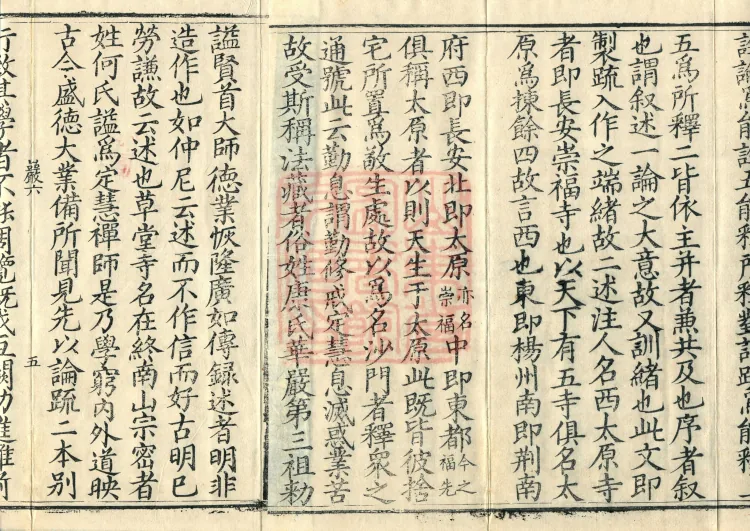 五爲所釋二皆依主并者兼共及也序者叙
也謂叙述一論之大意故又訓緒也此文即
製疏入作之端緒故二述注人名西太原寺
者即長安崇福寺也以天下有五寺俱名太
原爲揀餘四故言西也東即楊州南即荆南
府西即長安北即太原亦名崇福中即東都今之福先
俱稱太原者以則天生于太原此既皆彼捨
宅所置爲敬生處故以爲名沙門者釋衆之
通號此云勤息謂勤修戒定慧息滅惑業苦
故受斯稱法藏者俗姓康氏華嚴第三祖勑
謚賢首大師德業恢隆廣如傳録述者明非
造作也如仲尼云述而不作信而好古明已
勞謙故云述也草堂寺名在終南山宗密者
姓何氏謚爲定慧禪師是乃學窮内外道映
古今盛德大業備所聞見先以論疏二本別
嚴六
五